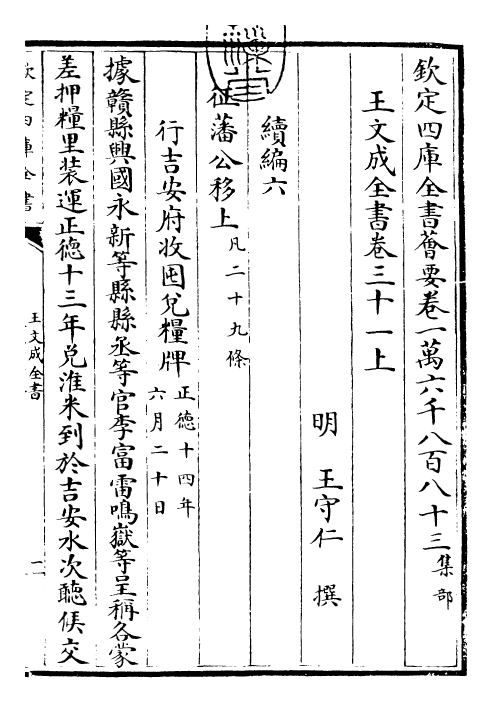 欽定四庫全書薈要卷一萬六千八百八十三 集部
王文成全書卷三十一上
明 王守仁 撰
續編六
征藩公移上 凡二十九條
行吉安府收囤兌糧牌 正德十四年六月二十日
據贛縣興國永新等縣縣丞等官李富雷鳴嶽等呈稱各蒙
差押糧里裝運正德十三年兌淮米到於吉安水次聽候交
欽定四庫全書
王文成全書